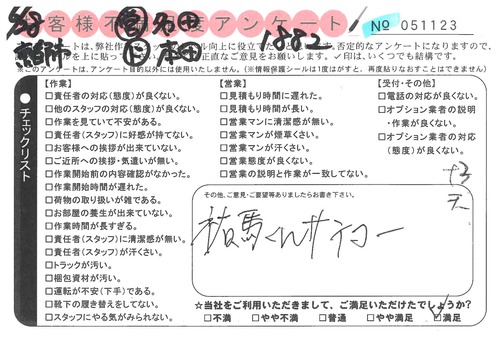 お客様不満足度アンケート
№ 051123
1882
本アンケートは、弊社作
ル向上に役立てた
否定的なアンケートになりますので、
正直なご意見をお願いします。✓印は、いくつでも結構です。
※このアンケートは、アンケート目的以外には使用いたしません。(※情報保護シールは1度はがすと、再度貼りなおすことはできません)
チェックリスト
【作業】
□責任者の対応(態度)が良くない。
□他のスタッフの対応(態度)が良くない。
□作業を見ていて不安がある。
□責任者(スタッフ)に好感が持てない。
□お客様への挨拶が出来ていない。
□ご近所への挨拶・気遣いが無い。
□作業開始前の内容確認がなかった。
□作業開始時間が遅れた。
□荷物の取り扱いが雑である。
□お部屋の養生が出来ていない。
□作業時間が長すぎる。
□責任者(スタッフ)に清潔感が無い。
□責任者(スタッフ)が汗くさい。
□トラックが汚い。
□梱包資材が汚い。
□運転が不安(下手)である。
□靴下の履き替えをしてない。
□スタッフにやる気がみられない。
【営業】
□見積もり時間に遅れた。
□見積もり時間が長い。
□営業マンに清潔感が無い。
□営業マンが煙草くさい。
□営業マンが汗くさい。
□営業態度が良くない。
□営業の説明と作業が一致してない。
【受付・その他】
□電話の対応が良くない。
□オプション業者の説明・作業が良くない。
□オプション業者の対応(態度)が良くない。
その他、ご意見・ご要望等ありましたらお書き下さい。
祐馬くんサイコー
☆当社をご利用いただきまして、ご満足いただけたでしょうか?
□不満 □やや不満 □普通 □やや満足 □満足